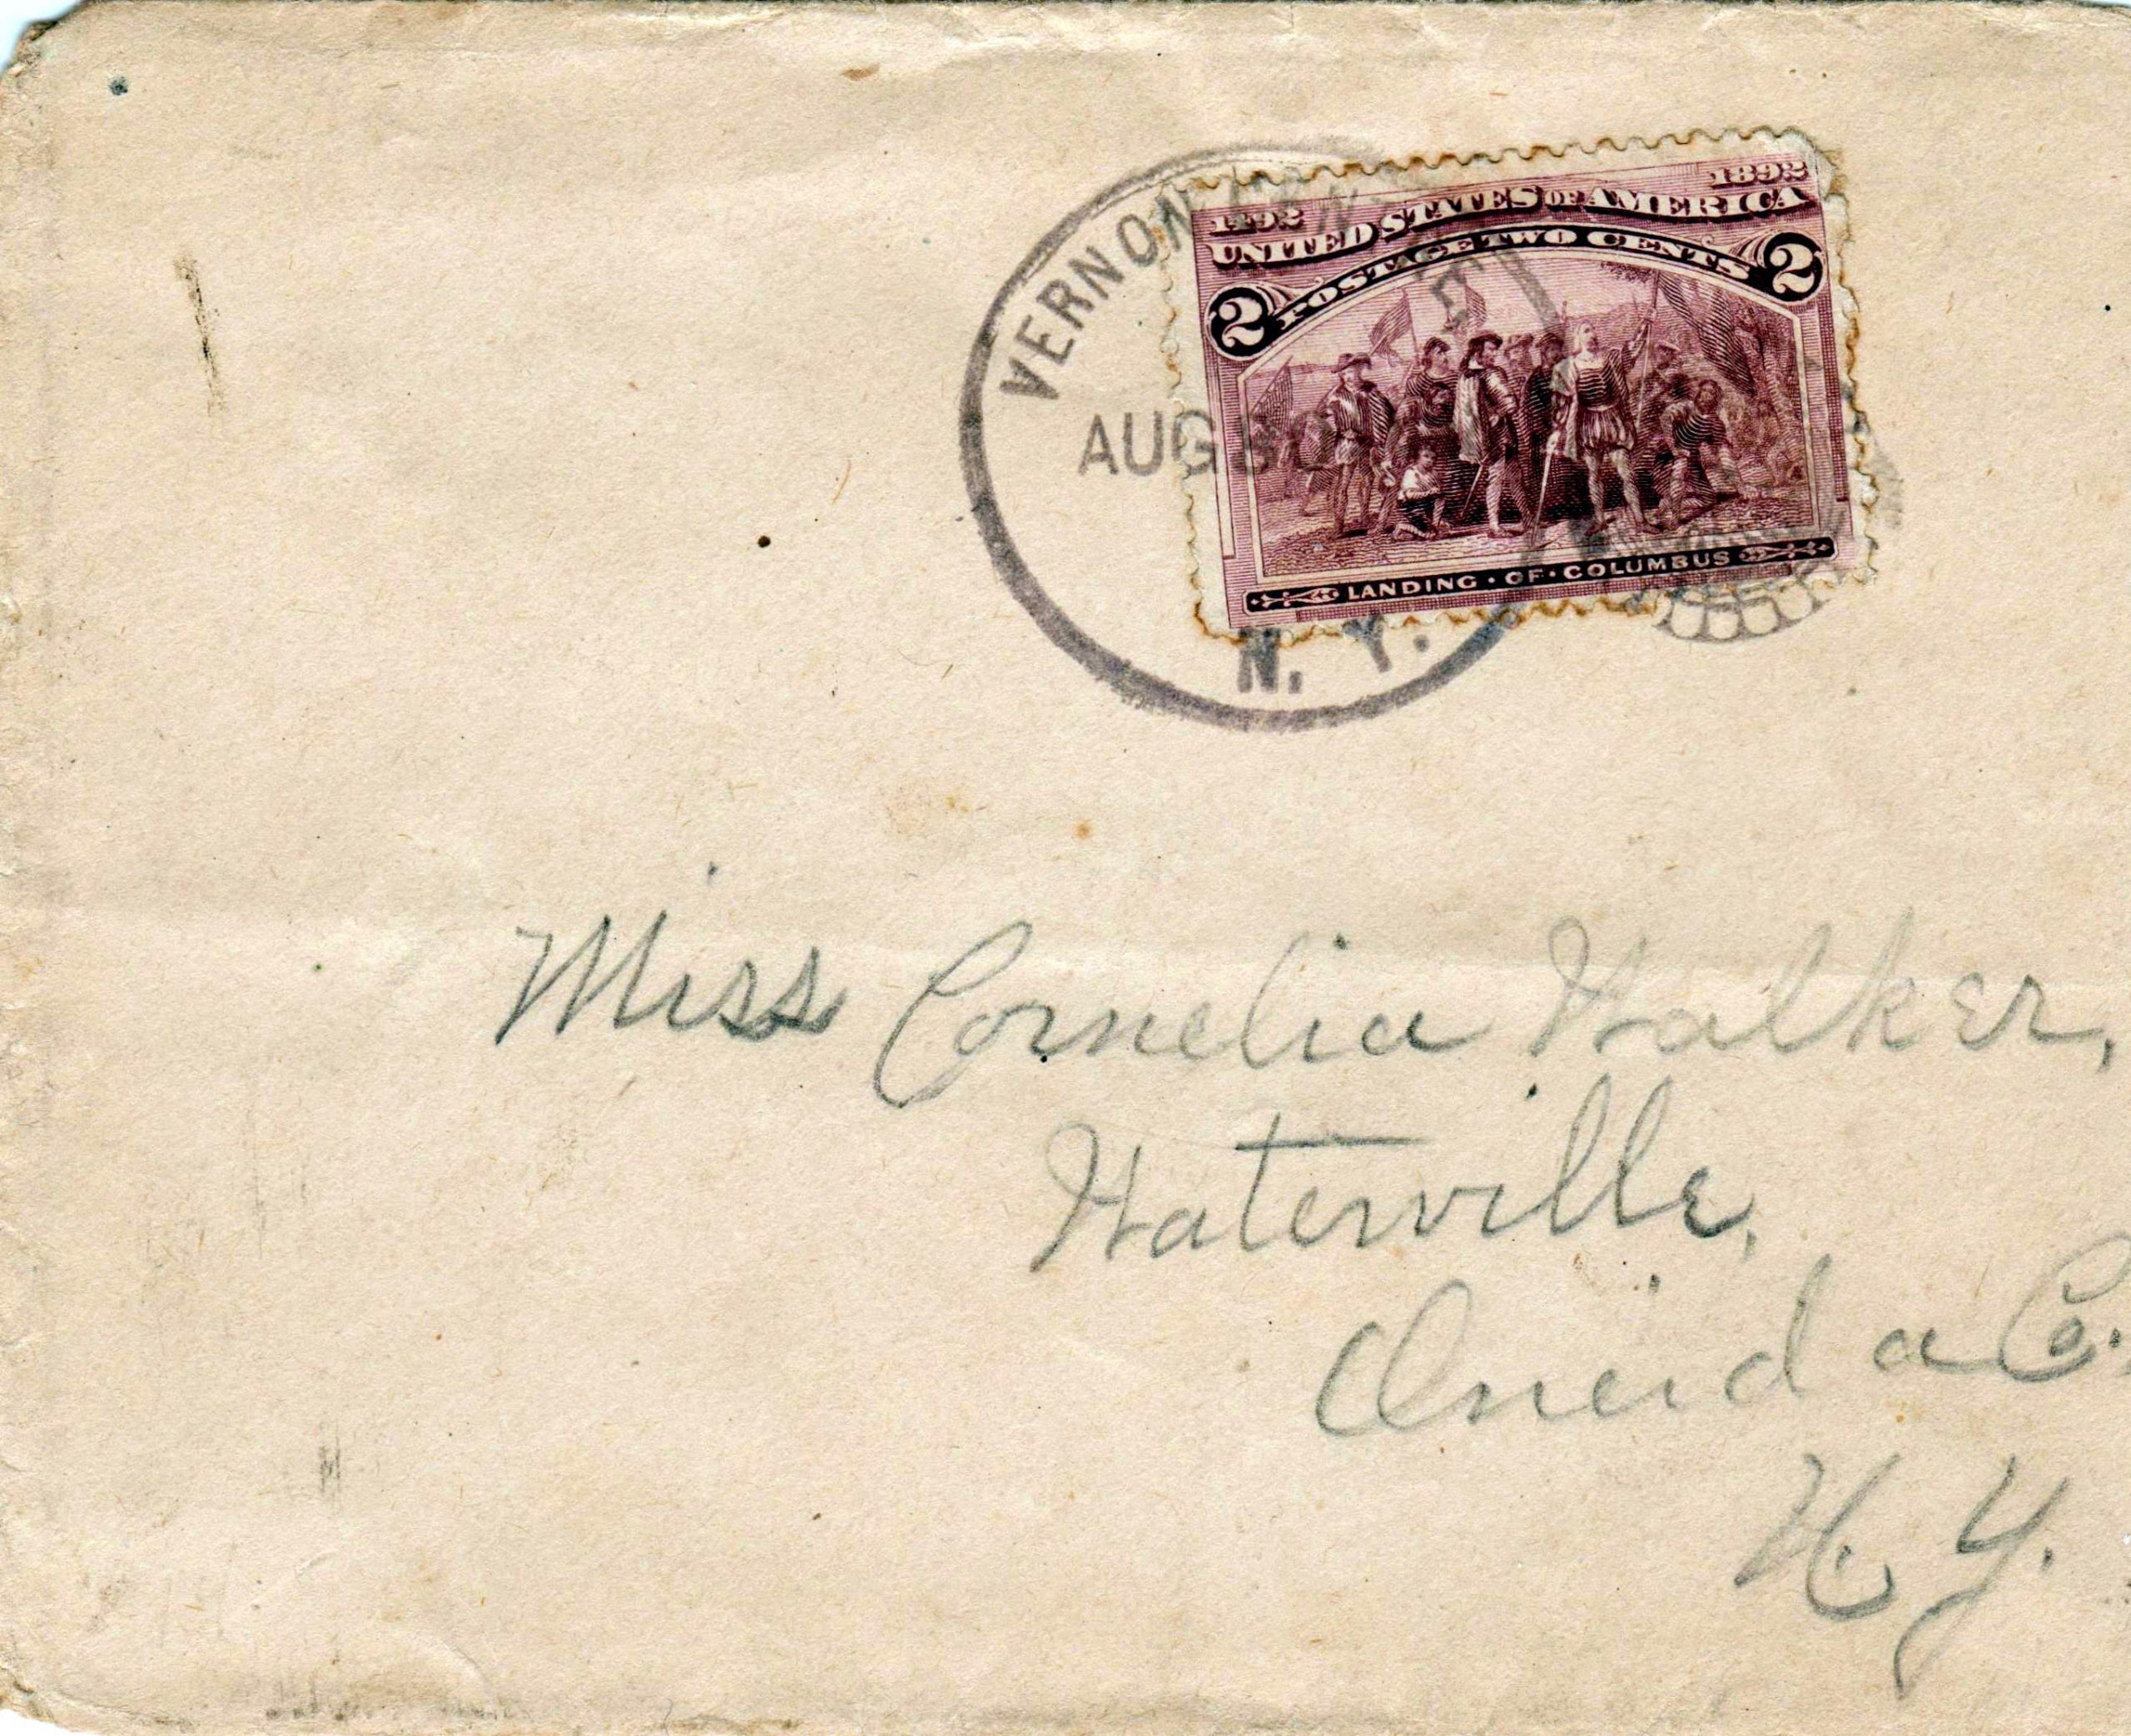 VERNON CENTRE
AUG 30
N. Y.
1492 1892
UNITED STATES OF AMERICA
POSTAGE TWO CENTS
2 2
LANDING · OF · COLUMBUS
Miss Cornelia Walker,
Waterville,
Oneida Co.,
N. Y.